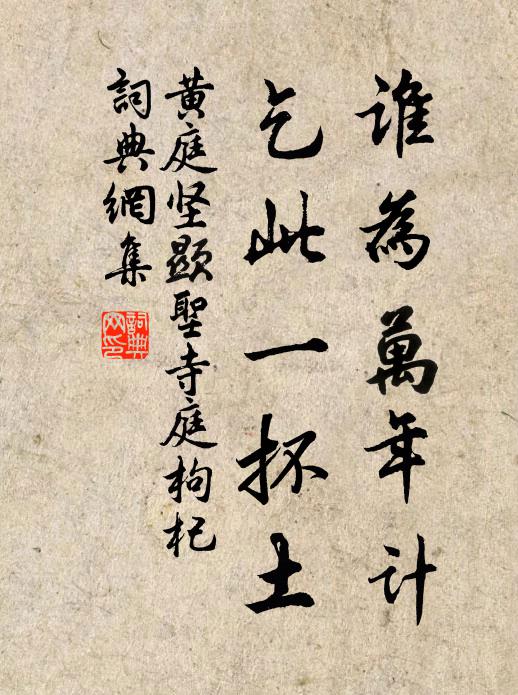 誰為萬年計
乞此一抔土
黄庭坚顯聖寺庭枸杞
詞典網集
詞典网印